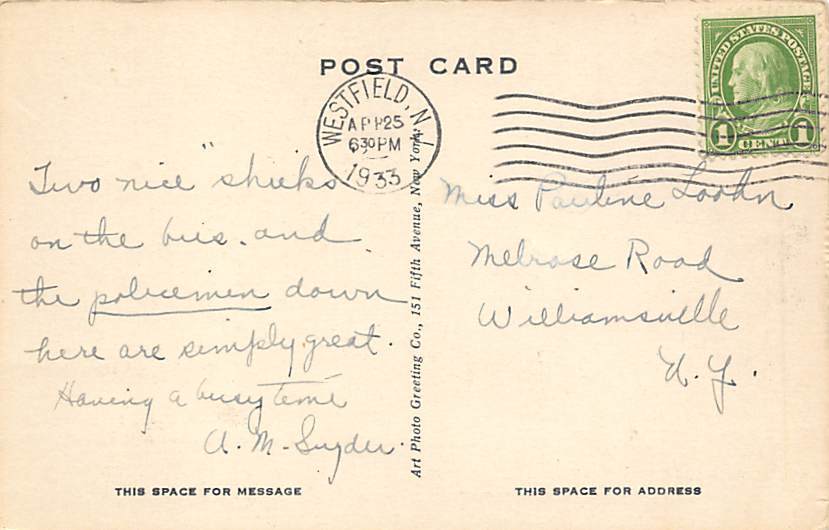 POST CARD
WESTFIELD, N.J.
APR 25
6 30 PM
1933
UNITED STATES POSTAGE
1 CENT 1
Two nice "shieks
on the bus. and
the policemen down
here are simply great.
Having a busy time
A. M. Snyder.
Art Photo Greeting Co., 151 Fifth Avenue, New York.
Miss Pauline
Melrose Road
Williamsville
N. Y.
THIS SPACE FOR MESSAGE
THIS SPACE FOR ADDRESS